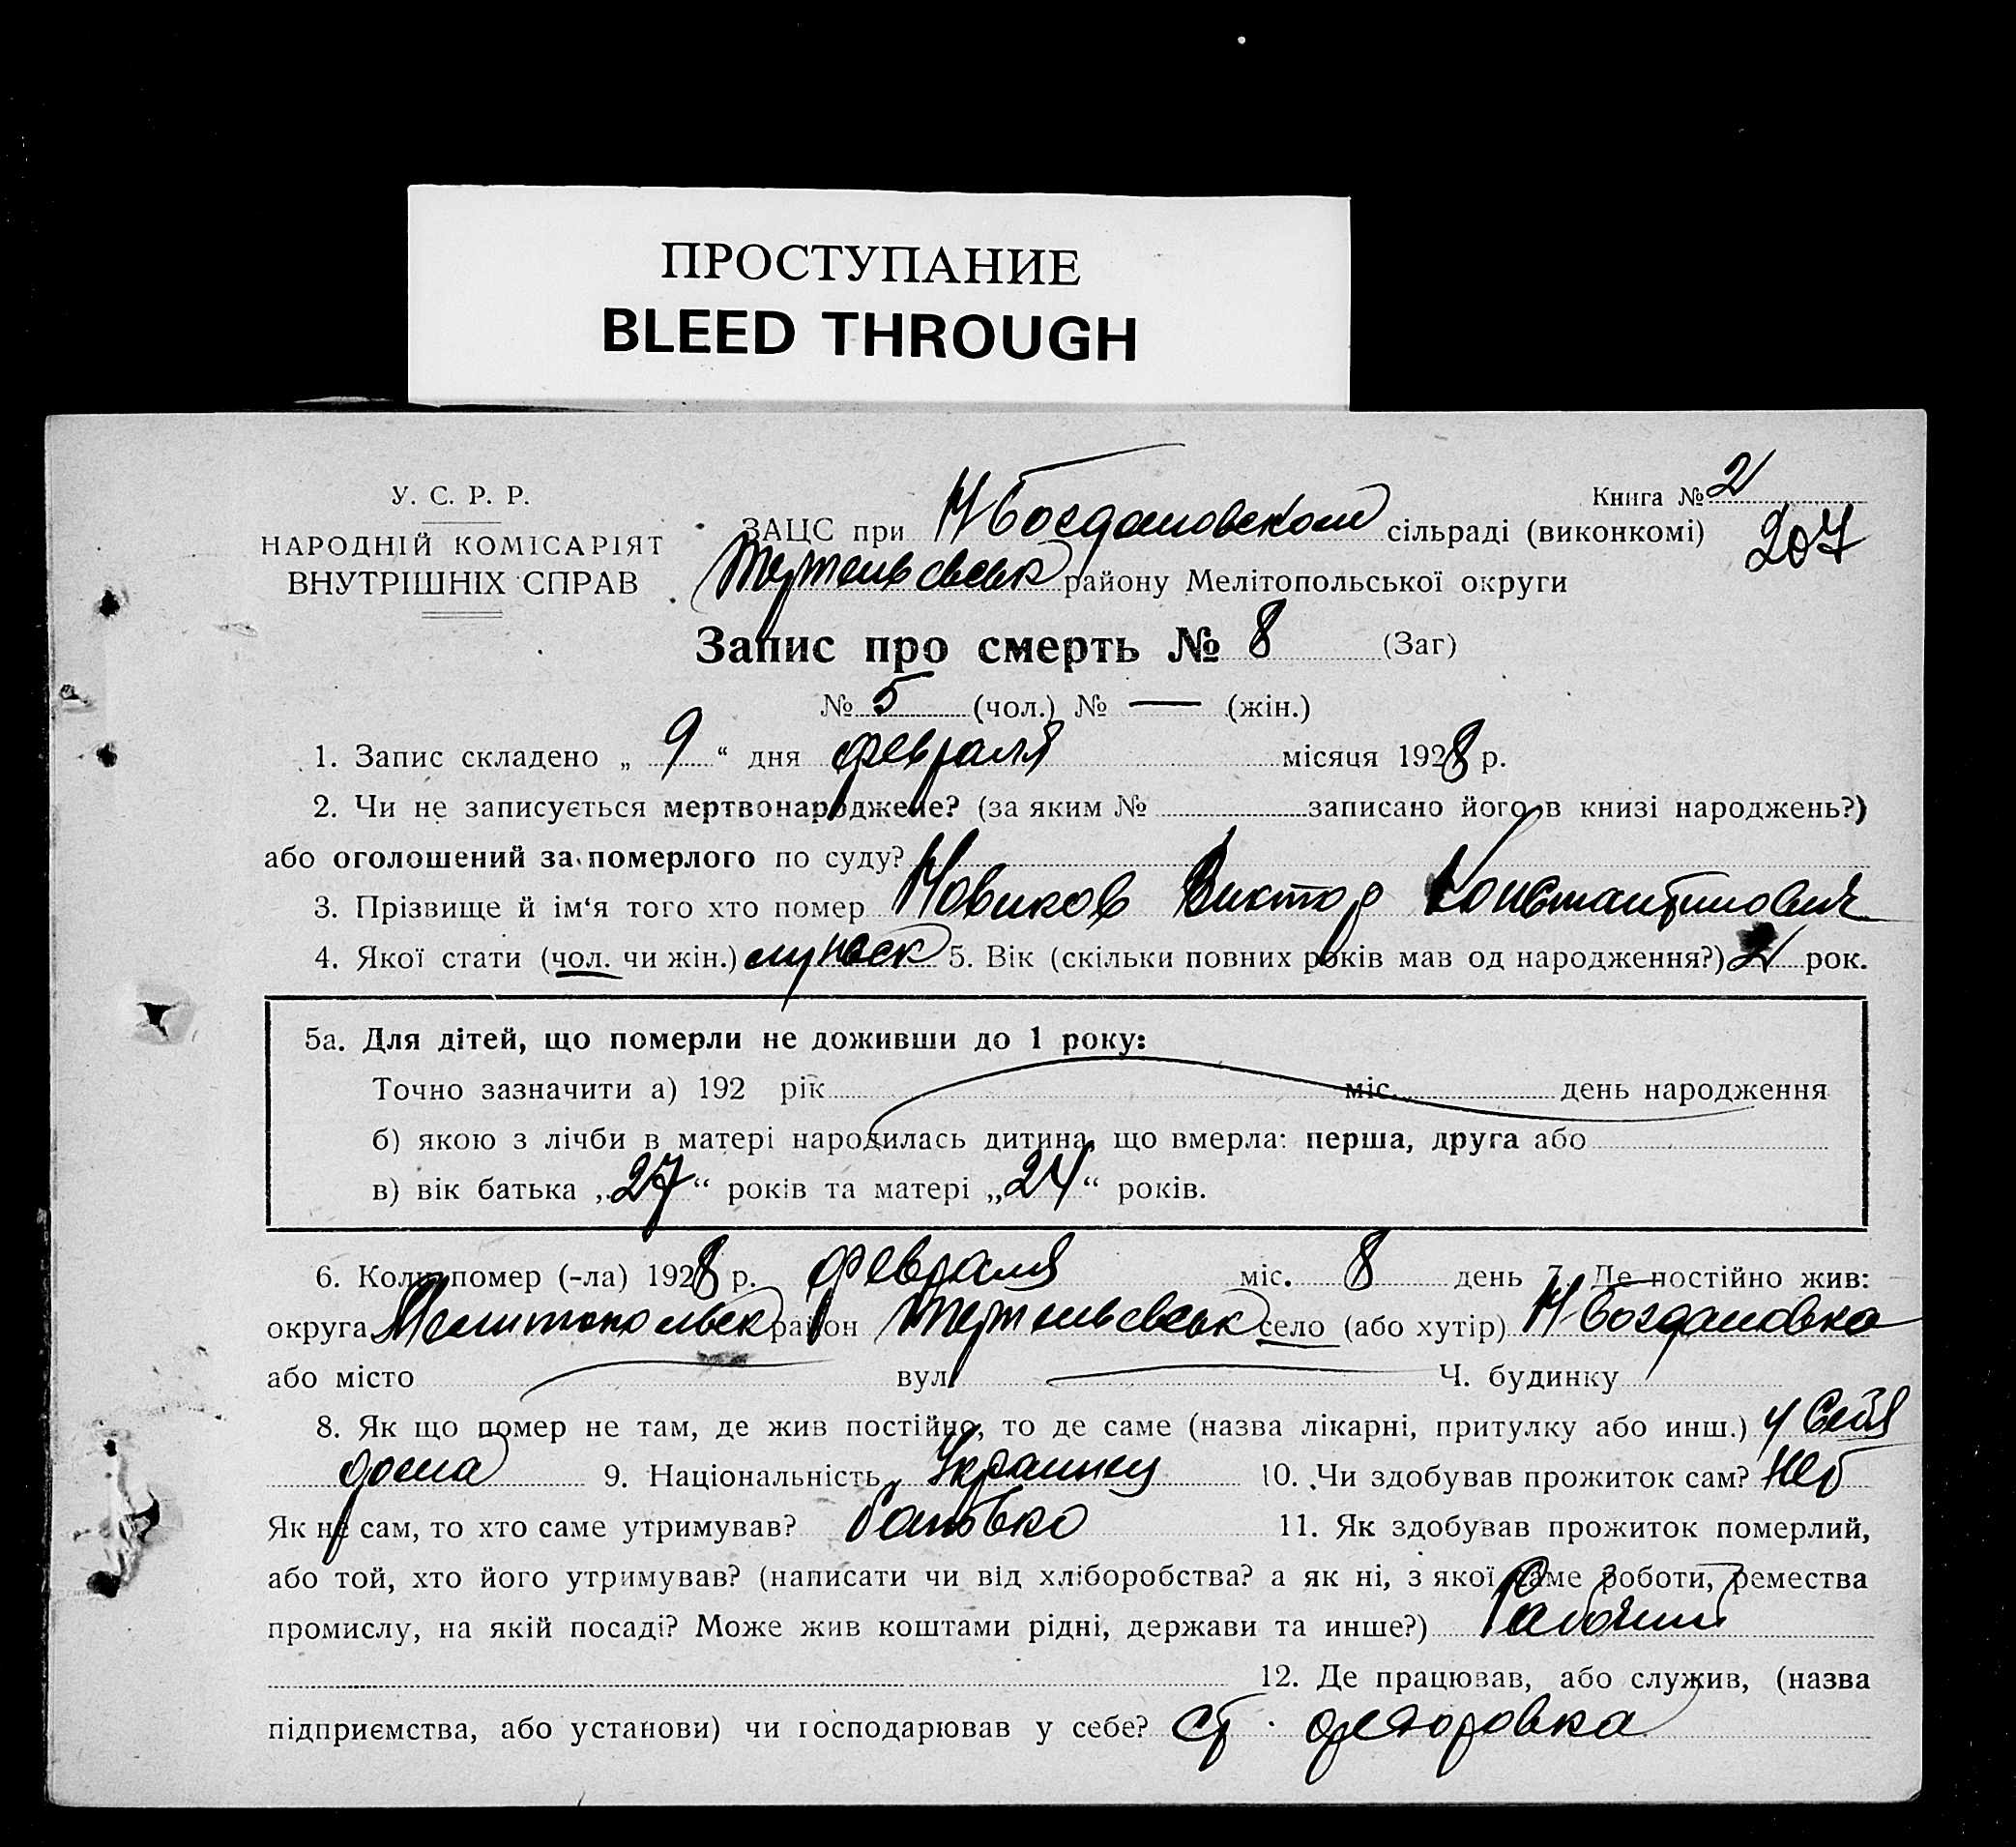 ПРОСТУПАНИЕ
BLEED THROUGH
У. С. Р. Р.
НАРОДНІЙ КОМІСАРІЯТ
ВНУТРІШНІХ СПРАВ
Книга № 2
207
ЗАЦС при Н Богдановском сільраді (виконкомі)
району Мелітопольської округи
Запис про смерть № 8 (Заг)
№ 5 (чол.) № — (жін.)
1. Запис складено „ 9 “ дня февраля місяця 1928 р.
2. Чи не записується мертвонароджене? (за яким № записано його в книзі народжень?)
або оголошений за померлого по суду?
3. Прізвище й ім‘я того хто помер Новиков Виктор Константинович
4. Якої стати (чол. чи жін.) мужск 5. Вік (скільки повних років мав од народження?) 2 рок.
5а. Для дітей, що померли не доживши до 1 року:
Точно зазначити а) 192 рік міс. день народження
б) якою з лічби в матері народилась дитина, що вмерла: перша, друга або
в) вік батька „ 27 “ років та матері „ 24 “ років.
6. Коли помер (-ла) 1928 р. февраля міс. 8 день 7. Де постійно жив:
округа Мелитопольск район село (або хутір) Н Богдановка
або місто вул. Ч. будинку
8. Як що помер не там, де жив постійно, то де саме (назва лікарні, притулку або инш.) у себя
дома 9. Національність Украинец 10. Чи здобував прожиток сам? Нет
Як не сам, то хто саме утримував? батько 11. Як здобував прожиток померлий,
або той, хто його утримував? (написати чи від хліборобства? а як ні, з якої саме роботи, ремества
промислу, на якій посаді? Може жив коштами рідні, держави та инше?) Рабочий
12. Де працював, або служив, (назва
підприємства, або установи) чи господарював у себе? ст. федоровка